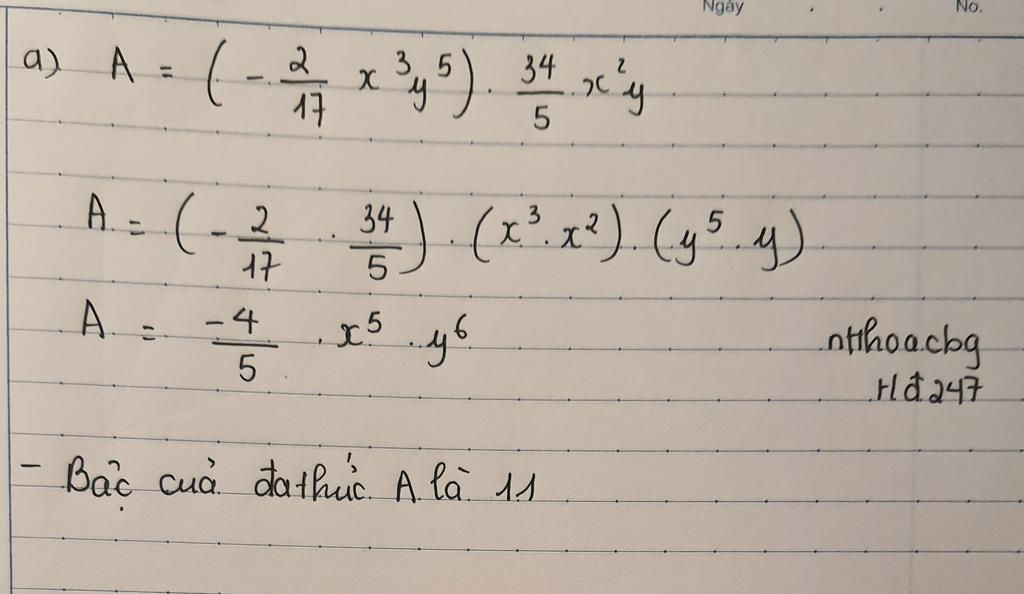 Ngày No.
a) A = ( - 2/17 x³y⁵ ) . 34/5 x²y
A = ( - 2/17 . 34/5 ) . (x³ . x²) . (y⁵ . y)
A = -4/5 . x⁵ . y⁶
ntthoacbg
Hđ247
- Bậc của đa thức A là 11